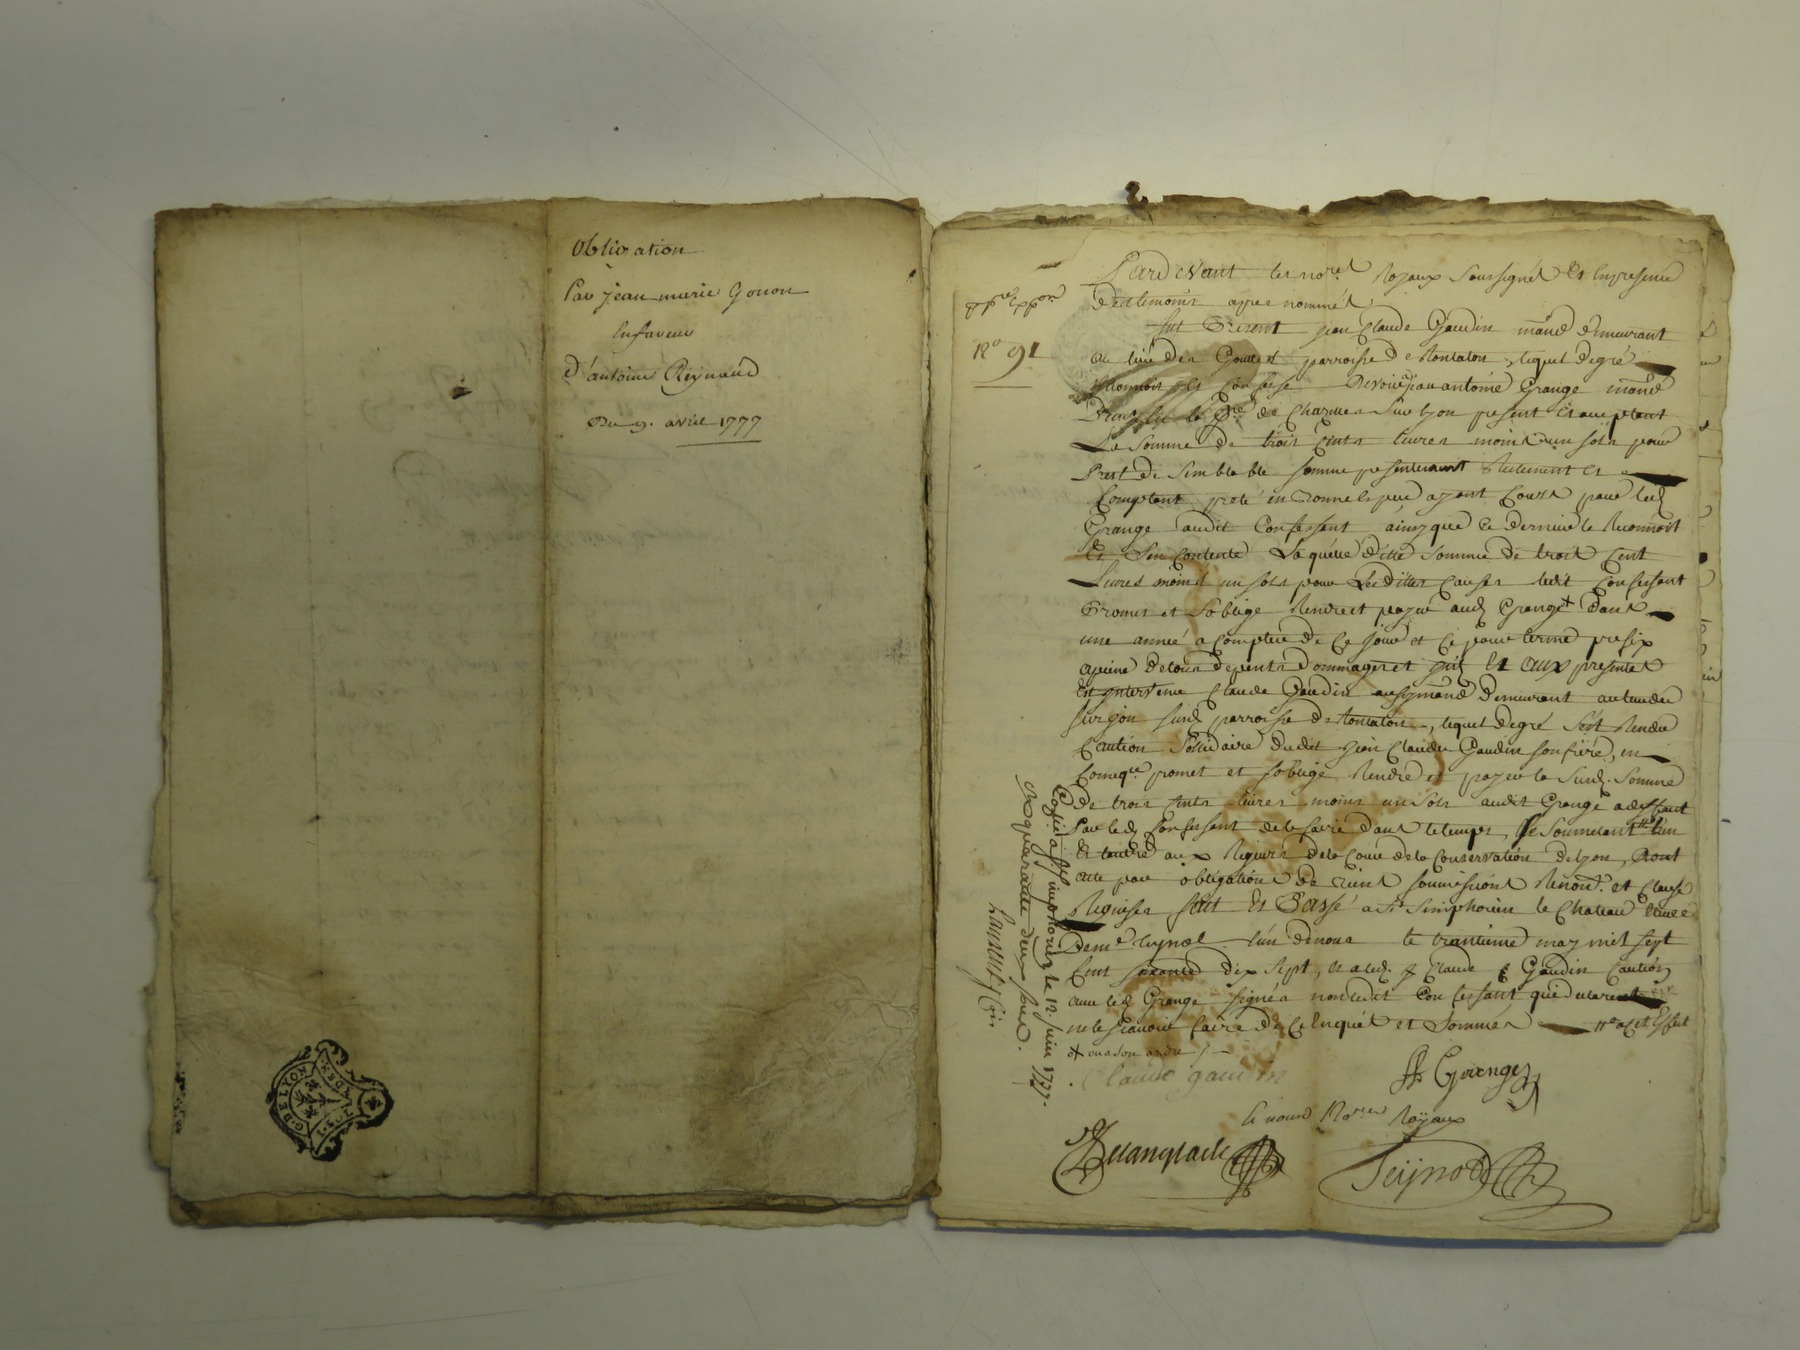 Obligation
Par jean marie Gonon
En faveur
d'antoine Reynaud
Du 9. avril 1777
G. DE LYON
2. SOLS
Pardevant les nores Royaux soussignés Et En presence
Des temoins apres nommés
N° 91
fut Present jean Claude Gaudin mand demeurant
au lieu des parroisse de, lequel de gré
reconnoit et Confesse Devoir a jean antoine Grange mand
de Charme sur lyon present et acceptant
La somme de trois Cents livres moins un sols pour
Prest de semblable somme presentement Reelement et
Comptant preté en ayant Cours par led
Grange audit Confessant ainsy que ce dernier le Reconnoit
Et s'en Contente Laquelle ditte somme de trois Cent
Livres moins un sols pour Les dittes causes ledit Confessant
Promet et s'oblige Rendre et payer aud Grange + dans
une année a Compter de Ce jour et Ce pour terme prefix
a peine de tous depents dommages et et aux presentes
Est intervenu Claude Gaudin aussy mand demeurant au lieu de
surd parroisse de, lequel de gré s'est Rendu
Caution solidaire dudit jean Claude Gaudin son frere, en
Conseqce promet et s'oblige Rendre et payer la surd. somme
De trois Cents livres moins un sols audit Grange a deffaut
Par led Confessant de le faire dans le temps, se soumetant l'un
Et l'autre aux Rigueurs de la Cour de la Conservation de lyon, Dont
acte par obligations de biens soumissions Renon.s et Clauses
Requises fait Et Passé a St Simphorien le Chateau Etude
De me l'un de nous le trantieme may mil sept
Cent soixante dix sept, et a led. Claude Gaudin Caution
avec led Grange signé non ledit Confessant qui a declaré
ne le sçavoir faire de Ce Enquis et Sommé a cet Effet
+ ou a son ordre
Claude gaudin
Grange
le nous Nores Royaux
Delanglade
Teÿnod
le 12. juin 1777.
quarante deux sous.